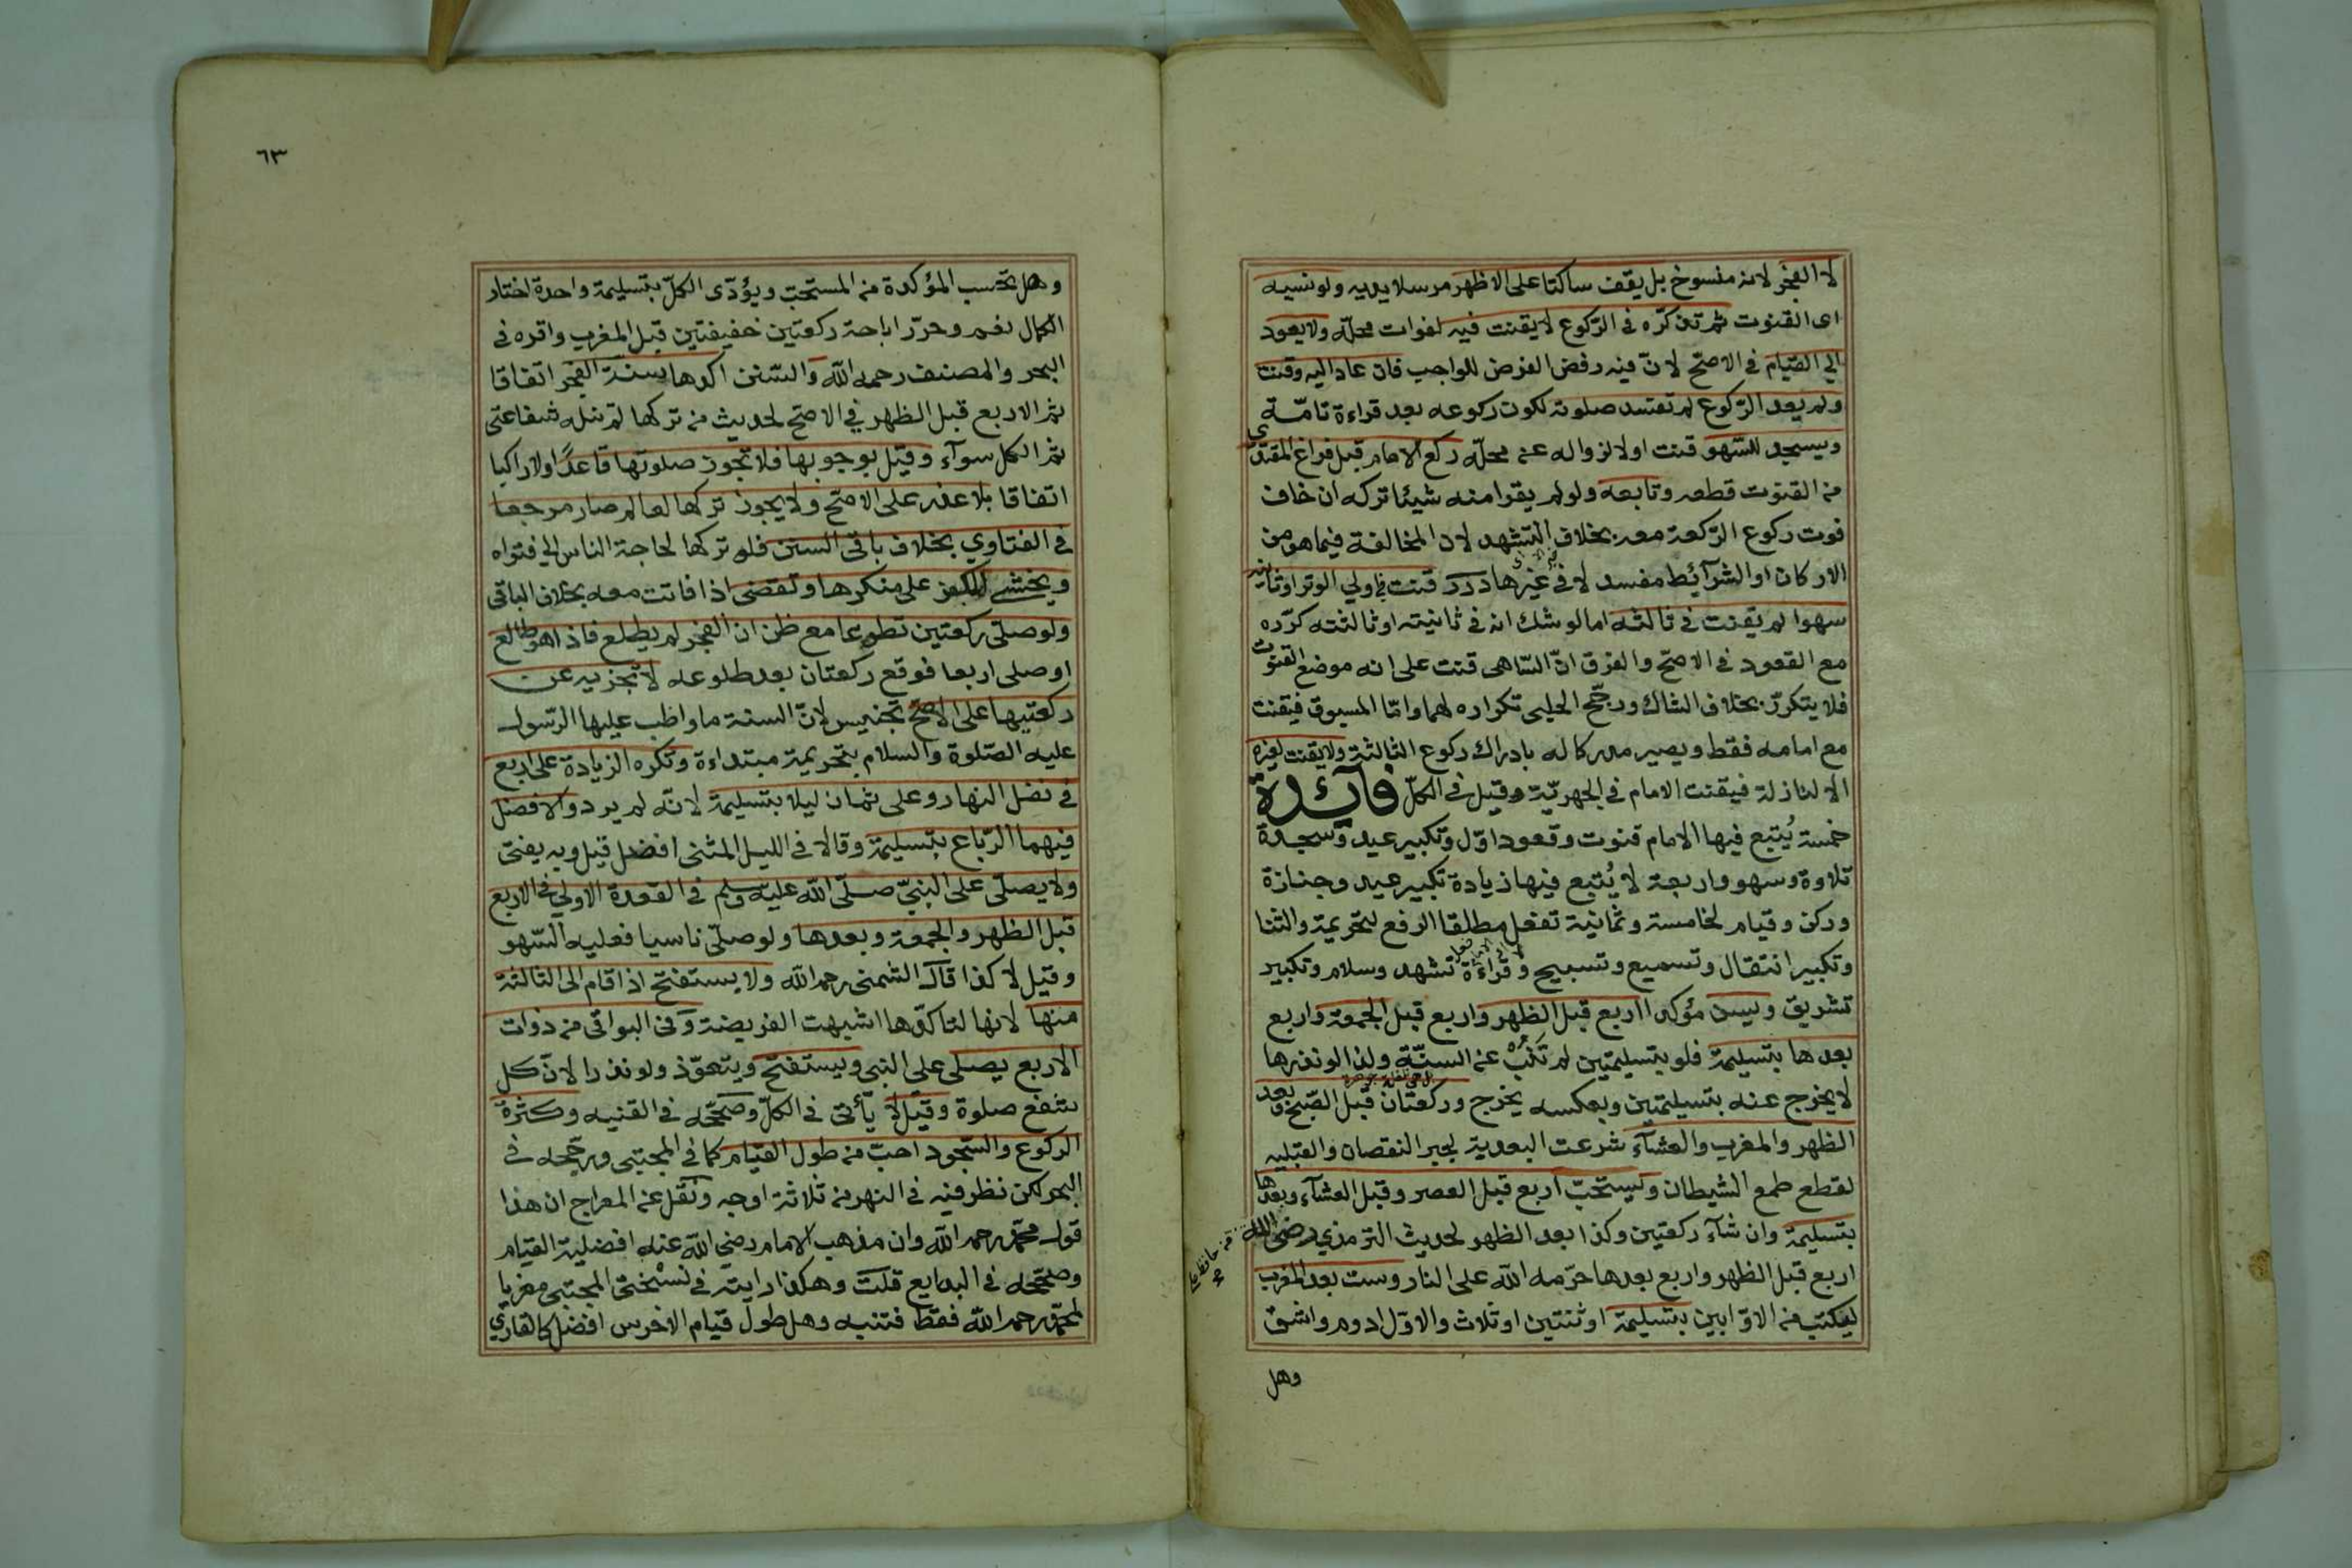 لا الفجر لانه منسوخ بل يقف ساكتا على الاظهر مرسلا يديه ولو نسيه
اى القنوت ثم تذكره فى الركوع لا يقنت فيه لفوات محله ولا يعود
الي القيام فى الاصح لان فيه رفض الفرض للواجب فان عاد اليه وقنت
ولم يعد الركوع لم تفسد صلوته لكون ركوعه بعد قراءة تامة
ويسجد للسهو قنت اولا لزواله عن محله ركع الامام قبل فراغ المقتدي
من القنوت قطعه وتابعه ولو لم يقرا منه شيئا تركه ان خاف
فوت ركوع الركعة معه بخلاف التشهد لان المخالفة فيما هو من
الاركان او الشرآئط مفسد لا فى غيرها درر قنت في اولي الوتر او ثانيته
سهوا لم يقنت فى ثالثه اما لو شك انه فى ثانيته او ثالثته كرره
مع القعود فى الاصح والفرق ان الساهى قنت على انه موضع القنوت
فلا يتكرر بخلاف الشاك ورجح الحلبى تكراره لهما واما المسبوق فيقنت
مع امامه فقط ويصير مدركا له بادراك ركوع الثالثة ولا يقنت لغيره
الا لنازلة فيقنت الامام فى الجهرية وقيل فى الكل فآئدة
خمسة يُتبع فيها الامام قنوت وقعود اول وتكبير عيد وسجدة
تلاوة وسهو واربعة لا يُتبع فيها زيادة تكبير عيد وجنازة
وركن وقيام لخامسة وثمانية تفعل مطلقا الرفع لتحريمة والثنا
وتكبير انتقال وتسميع وتسبيح وقراءة تشهد وسلام وتكبير
تشريق ويسن مؤكدا اربع قبل الظهر واربع قبل الجمعة واربع
بعدها بتسليمة فلو بتسليمتين لم تنب عن السنة ولذا لو نذرها
لا يخرج عنه بتسليمتين وبعكسه يخرج وركعتان قبل الصبح وبعد
الظهر والمغرب والعشآء شرعت البعدية لجبر النقصان والقبليه
لقطع طمع الشيطان ويستحب اربع قبل العصر وقبل العشآء وبعدها
بتسليمة وان شآء ركعتين وكذا بعد الظهر لحديث الترمذي رضى الله
اربع قبل الظهر واربع بعدها حرمه الله على النار وست بعد المغرب
ليكتب من الاوابين بتسليمة او ثنتين او ثلاث والاول ادوم واشق
وهل
٦٣
وهل تحتسب المؤكدة من المستحب ويؤدى الكل بتسليمة واحدة اختار
الكمال نعم وحرر اباحة ركعتين خفيفتين قبل المغرب واقره فى
البحر والمصنف رحمه الله والسنن اكدها سنة الفجر اتفاقا
ثم الاربع قبل الظهر في الاصح لحديث من تركها لم تنله شفاعتى
ثم الكل سوآء وقيل بوجوبها فلا تجوز صلوتها قاعدًا ولا راكبا
اتفاقا بلا عذر على الاصح ولا يجوز تركها لعالم صار مرجعا
فى الفتاوي بخلاف باقى السنن فله تركها لحاجة الناس الى فتواه
ويخشى الكفر على منكرها وتقضى اذا فاتت معه بخلاف الباقى
ولو صلى ركعتين تطوعا مع ظن ان الفجر لم يطلع فاذا هو طالع
او صلى اربعا فوقع ركعتان بعد طلوعه لا تجزيه عن
ركعتيها على الاصح تجنيس لان السنة ما واظب عليها الرسول
عليه الصلوة والسلام بتحريمة مبتداءة وتكره الزيادة على اربع
فى نفل النهار وعلى ثمان ليلا بتسليمة لانه لم يرد والافضل
فيهما الرباع بتسليمة وقالا فى الليل المثنى افضل قيل وبه يفتى
ولا يصلى على النبى صلى الله عليه وسلم فى القعدة الاولي فى الاربع
قبل الظهر والجمعة وبعدها ولو صلى ناسيا فعليه السهو
وقيل لا كذا قال الشمنى رحمه الله ولا يستفتح اذا قام الى الثالثة
منها لانها لتاكدها اشبهت الفريضة وفى البواقى من ذوات
الاربع يصلى على النبى ويستفتح ويتعوذ ولو نذرا لان كل
شفع صلوة وقيل لا يأتى فى الكل وصححه فى القنيه وكثرة
الركوع والسجود احب من طول القيام كما فى المجتبى ورجحه فى
البحر لكن نظر فيه فى النهر من ثلاثة اوجه ونقل عن المعراج ان هذا
قول محمد رحمه الله وان مذهب الامام رضى الله عنه افضلية القيام
وصححه فى البدايع قلت وهكذا رايته فى نسختى المجتبى معزيا
لمحمد رحمه الله فقط فتنبه وهل طول قيام الاخرس افضل كالقاري